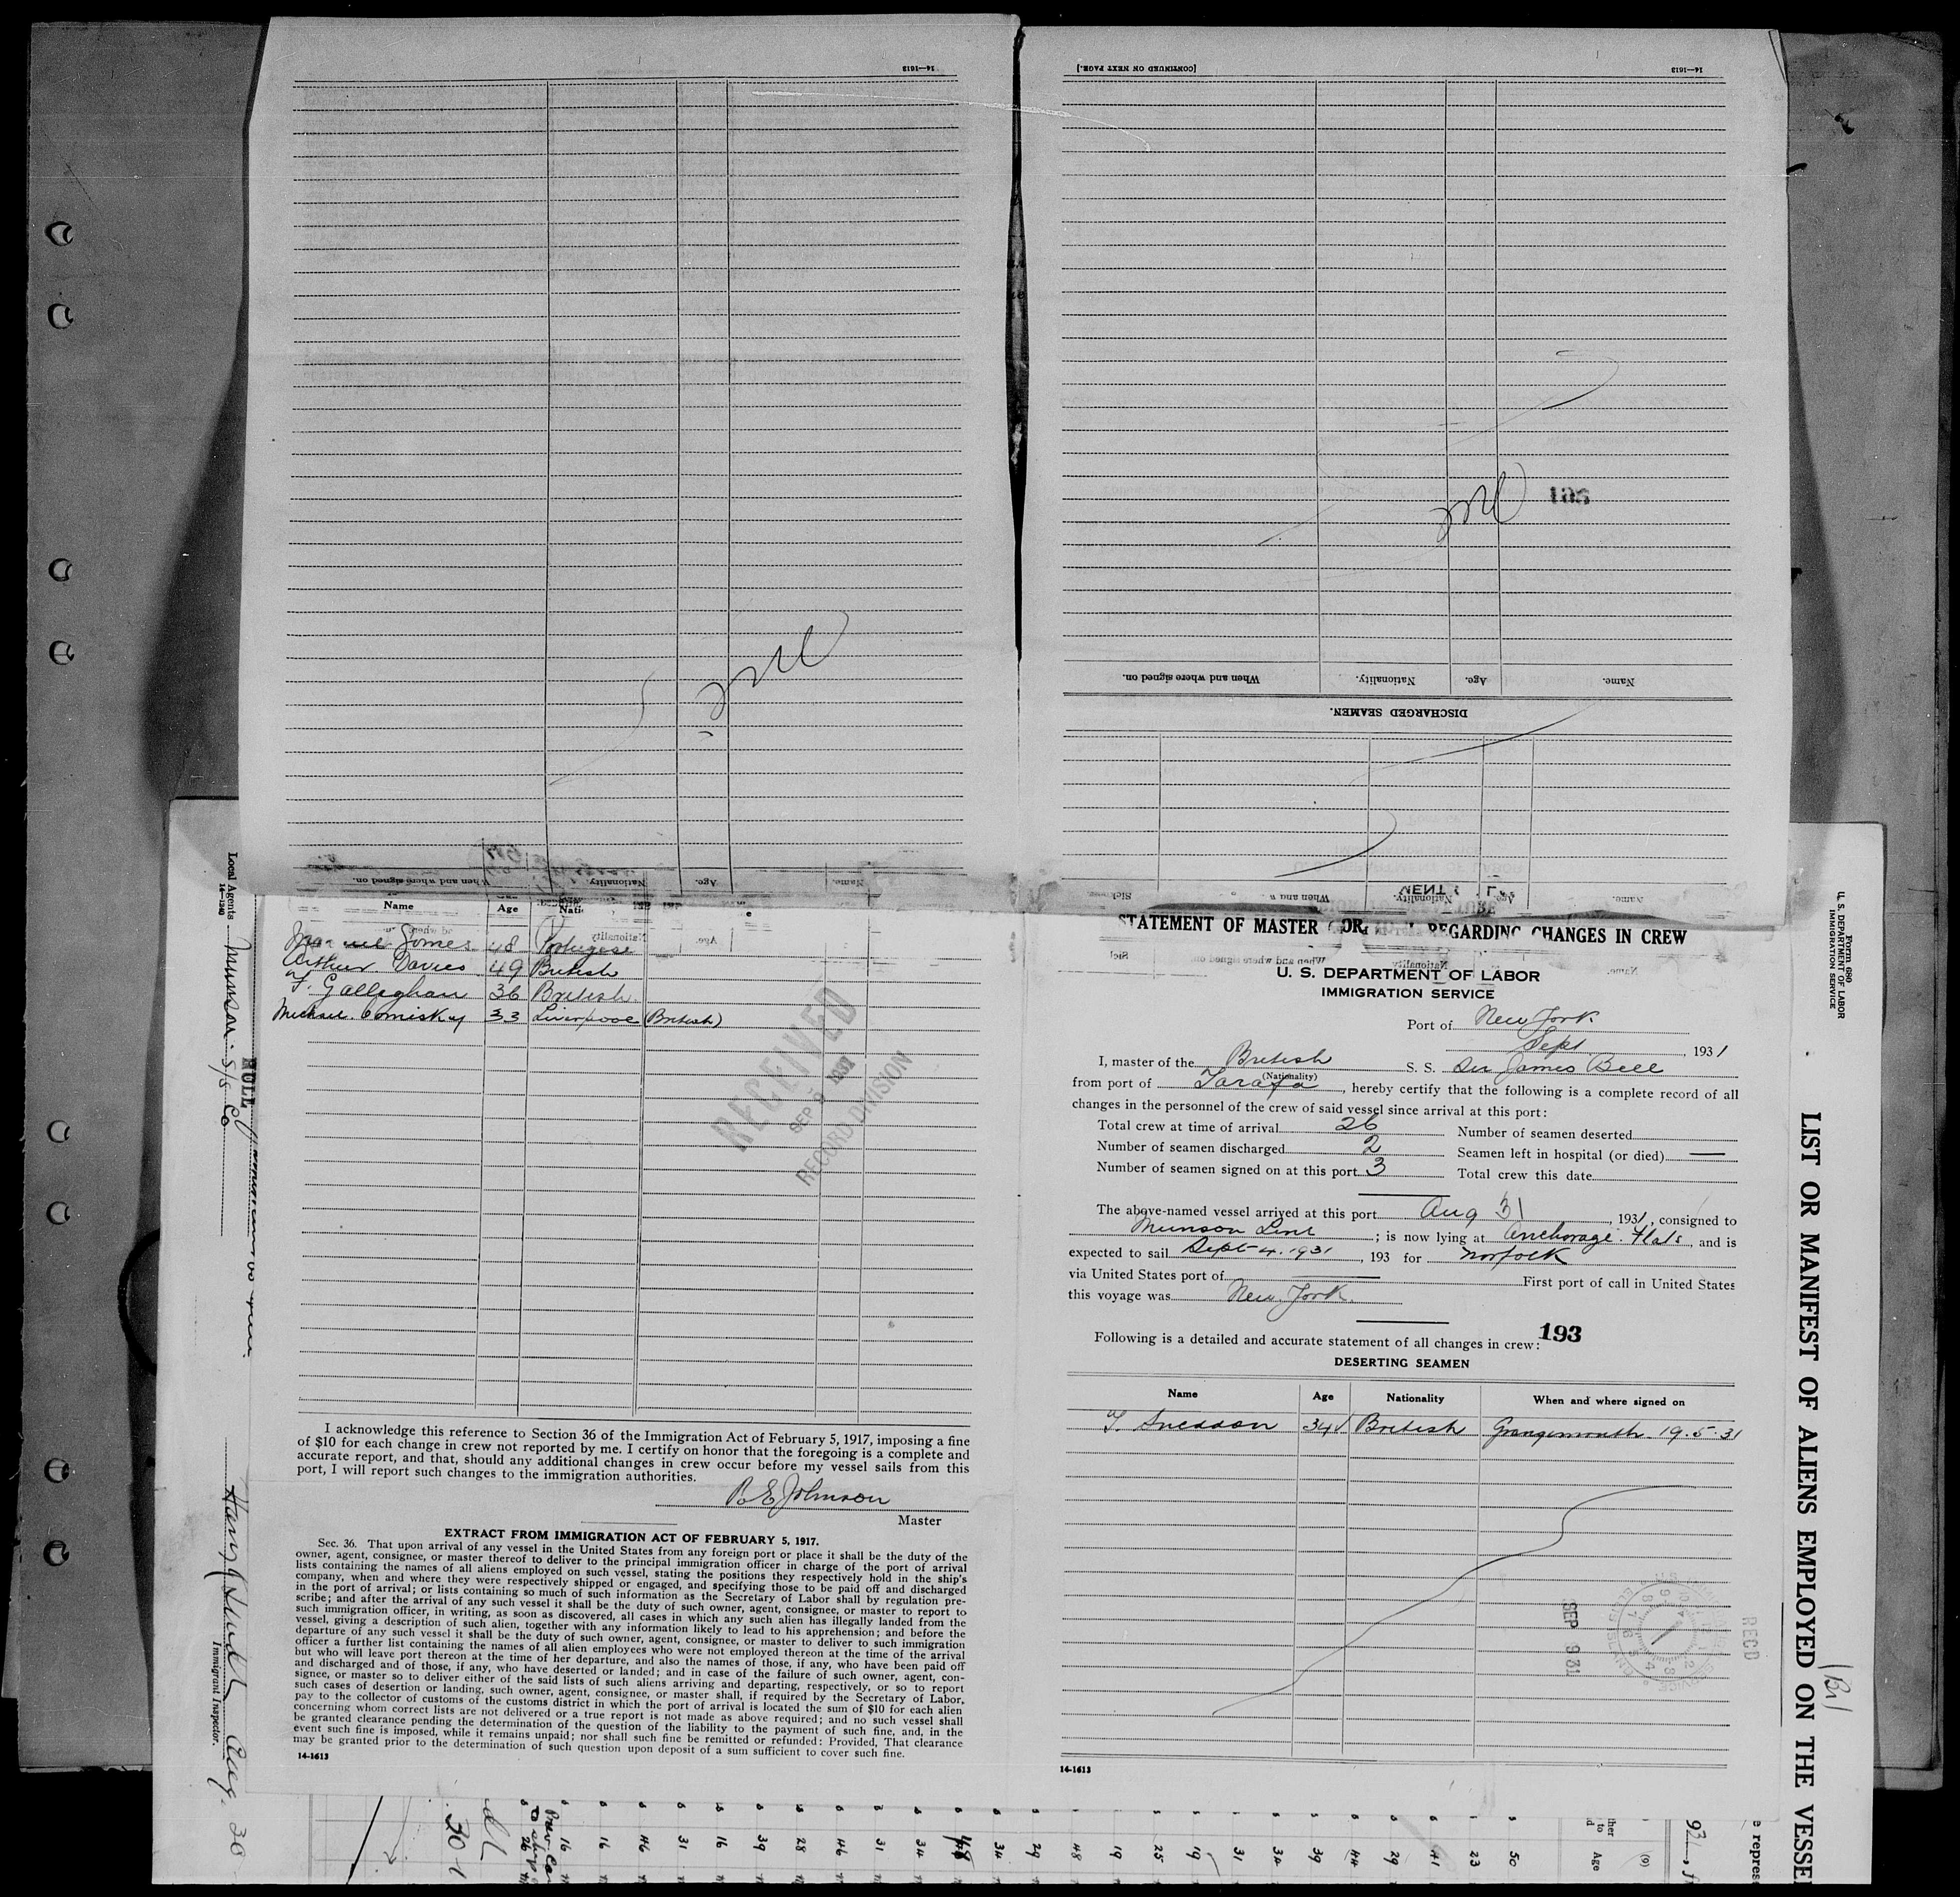 14—1613
[CONTINUED ON NEXT PAGE.]
14—1613
nil
193
nil
Name. Age. Nationality. When and where signed on.
DISCHARGED SEAMEN.
When and where signed on. Nationality. Age. Name.
Name. Age. Nationality. When and w
Name Age Nati
Manuel Gomes 48 Portugese
Arthur Davies 49 British
F. Gallaghan 36 British
Michael Comisky 33 Liverpool (British)
RECEIVED
SEP 9 1931
RECORD DIVISION
I acknowledge this reference to Section 36 of the Immigration Act of February 5, 1917, imposing a fine
of $10 for each change in crew not reported by me. I certify on honor that the foregoing is a complete and
accurate report, and that, should any additional changes in crew occur before my vessel sails from this
port, I will report such changes to the immigration authorities.
B. E. Johnson
Master
EXTRACT FROM IMMIGRATION ACT OF FEBRUARY 5, 1917.
Sec. 36. That upon arrival of any vessel in the United States from any foreign port or place it shall be the duty of the
owner, agent, consignee, or master thereof to deliver to the principal immigration officer in charge of the port of arrival
lists containing the names of all aliens employed on such vessel, stating the positions they respectively hold in the ship's
company, when and where they were respectively shipped or engaged, and specifying those to be paid off and discharged
in the port of arrival; or lists containing so much of such information as the Secretary of Labor shall by regulation pre-
scribe; and after the arrival of any such vessel it shall be the duty of such owner, agent, consignee, or master to report to
such immigration officer, in writing, as soon as discovered, all cases in which any such alien has illegally landed from the
vessel, giving a description of such alien, together with any information likely to lead to his apprehension; and before the
departure of any such vessel it shall be the duty of such owner, agent, consignee, or master to deliver to such immigration
officer a further list containing the names of all alien employees who were not employed thereon at the time of the arrival
but who will leave port thereon at the time of her departure, and also the names of those, if any, who have been paid off
and discharged and of those, if any, who have deserted or landed; and in case of the failure of such owner, agent, con-
signee, or master so to deliver either of the said lists of such aliens arriving and departing, respectively, or so to report
such cases of desertion or landing, such owner, agent, consignee, or master shall, if required by the Secretary of Labor,
pay to the collector of customs of the customs district in which the port of arrival is located the sum of $10 for each alien
concerning whom correct lists are not delivered or a true report is not made as above required; and no such vessel shall
be granted clearance pending the determination of the question of the liability to the payment of such fine, and, in the
event such fine is imposed, while it remains unpaid; nor shall such fine be remitted or refunded: Provided, That clearance
may be granted prior to the determination of such question upon deposit of a sum sufficient to cover such fine.
14-1613
STATEMENT OF MASTER OR REGARDING CHANGES IN CREW
U. S. DEPARTMENT OF LABOR
IMMIGRATION SERVICE
Port of New York
Sept , 1931
I, master of the British S. S. Sir James Bell
(Nationality)
from port of Tarafa, hereby certify that the following is a complete record of all
changes in the personnel of the crew of said vessel since arrival at this port:
Total crew at time of arrival 26 Number of seamen deserted
Number of seamen discharged 2 Seamen left in hospital (or died) —
Number of seamen signed on at this port 3 Total crew this date
The above-named vessel arrived at this port Aug 31, 1931, consigned to
Munson Line ; is now lying at Anchorage Flats, and is
expected to sail Sept 4. 1931, 193 for Norfolk
via United States port of First port of call in United States
this voyage was New York.
Following is a detailed and accurate statement of all changes in crew: 193
DESERTING SEAMEN
Name Age Nationality When and where signed on
T. Sneddon 34 British Grangemouth 19.5.31
SEP 9 31
REC'D
14-1613
Local Agents Munson S/S Co
14—1340
Aug. 30
Immigrant Inspector.
Form 680
U. S. DEPARTMENT OF LABOR
IMMIGRATION SERVICE
LIST OR MANIFEST OF ALIENS EMPLOYED ON THE VESSEL
(Br)
50
23
41
29
44
39
34
31
19
25
19
48
29
34
34
31
46
28
39
16
31
46
16
16
(9)
Age